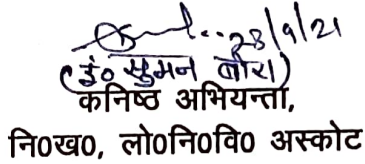 28/9/21
(इं० सुमन बोरा)
कनिष्ठ अभियन्ता,
नि0ख0, लो0नि0वि0 अस्कोट